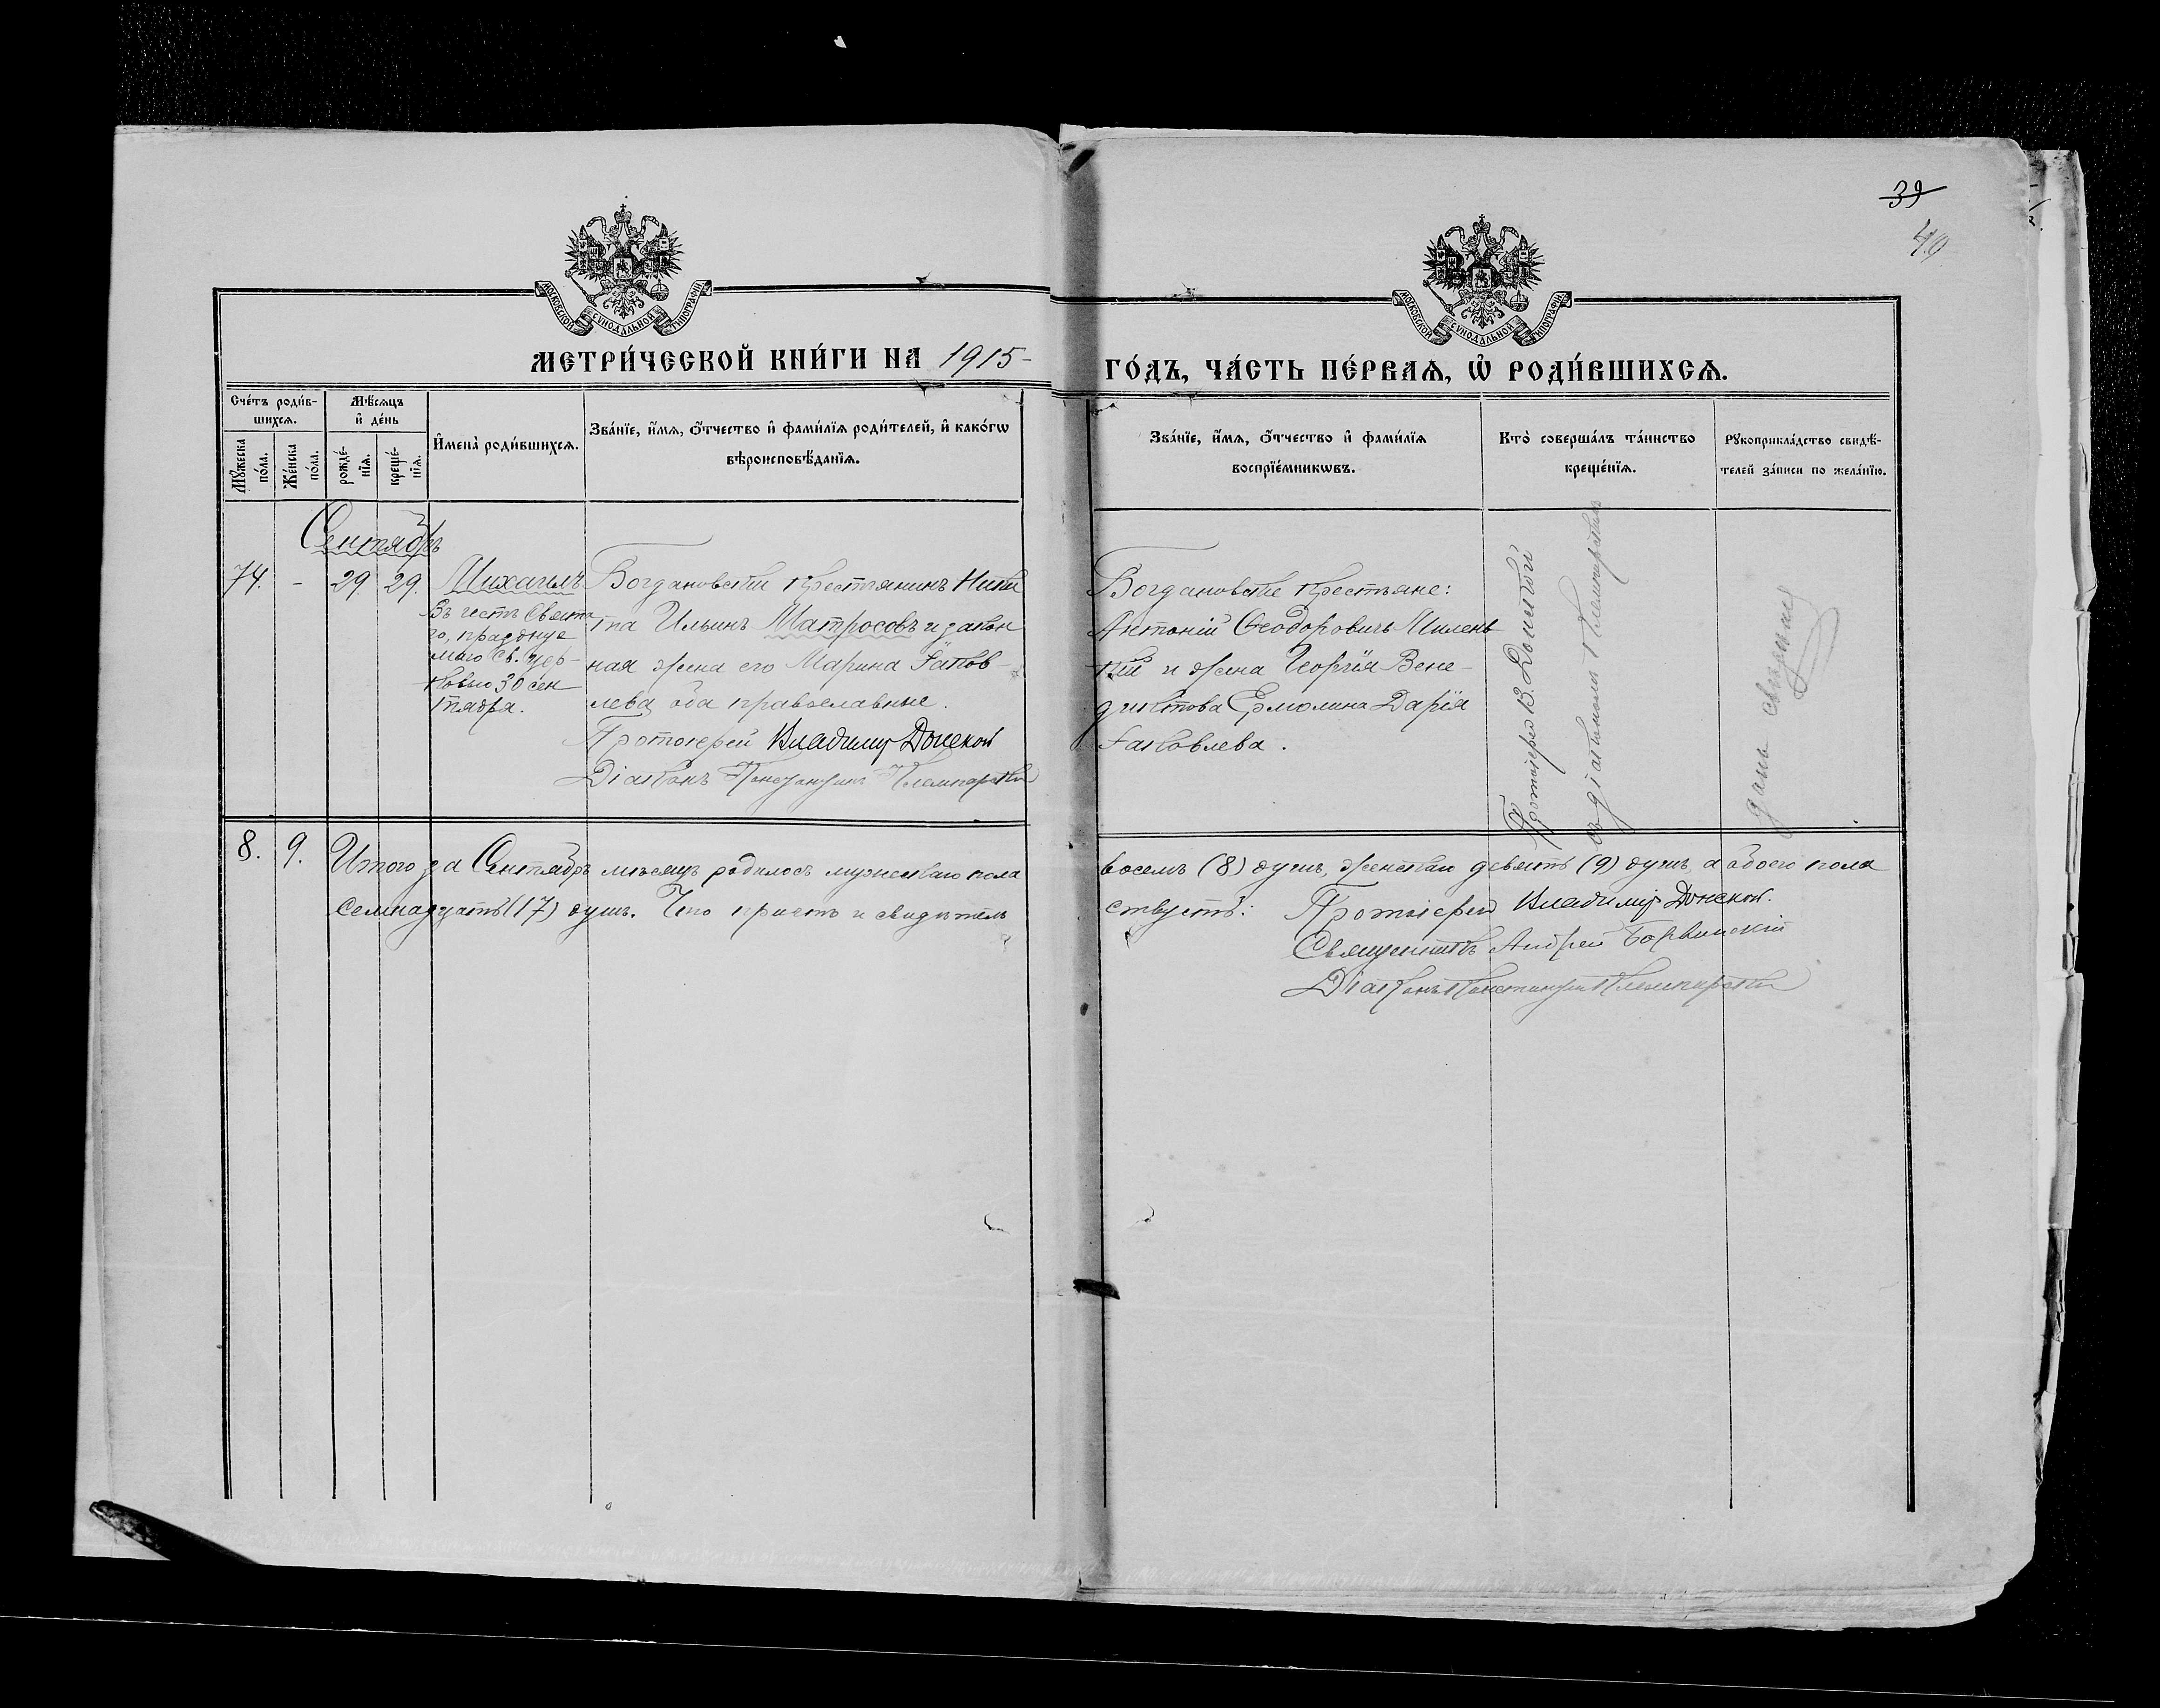 39
40
МОСКОВСКОЙ СѴНОДАЛЬНОЙ ТИПОГРАФІИ
МОСКОВСКОЙ СѴНОДАЛЬНОЙ ТИПОГРАФІИ
МЕТРИ́ЧЕСКОЙ КНИ́ГИ НА 1915
ГО́ДЪ, ЧА́СТЬ ПЕ́РВАѦ, Ѡ҆ РОДИ́ВШИХСѦ.
Сче́тъ роди́в-
шихсѧ.
Мꙋ́жеска по́ла.
Же́нска по́ла.
Мѣ́сѧцъ
и҆ де́нь
рожде́-
нїѧ.
креще́-
нїѧ.
И҆мена̀ роди́вшихсѧ.
Зва́нїе, и҆́мѧ, ѻ҆́тчество и҆ фами́лїѧ роди́телей, и҆ како́гѡ
вѣроисповѣ́данїѧ.
Зва́нїе, и҆́мѧ, ѻ҆́тчество и҆ фами́лїѧ
воспрїе́мникѡвъ.
Кто̀ соверша́лъ та́инство
креще́нїѧ.
Рꙋкоприкла́дство свидѣ́-
телей за́писи по жела́нїю.
Сентябрь
74. - 29 29. Михаилъ
Въ честь Свята
го, празднуе
маго Св. Цер-
ковью 30 сен
тября.
Богдановскій крестьянинъ Ники
та Ильинъ Матросовъ и закон
ная жена его Марина Іаков-
лева оба православные.
Протоіерей Владиміръ Донской
Діаконъ Константинъ
Богдановскіе крестьяне:
Антоній Ѳеодоровичъ Милен
кій и жена Георгія Вене-
диктова Ермолина Дарія
Іаковлева.
Протоіерей В. Донской
съ діакономъ
8. 9. Итого за Сентябрь мѣсяцъ родилось мужескаго пола
восемь (8) душъ, женскаго девять (9) душъ, а обоего пола
семнадцать (17) душъ. Что причтъ и свидѣтель
ствуетъ: Протоіерей Владиміръ Донской.
Священникъ Андрей
Діаконъ Константинъ